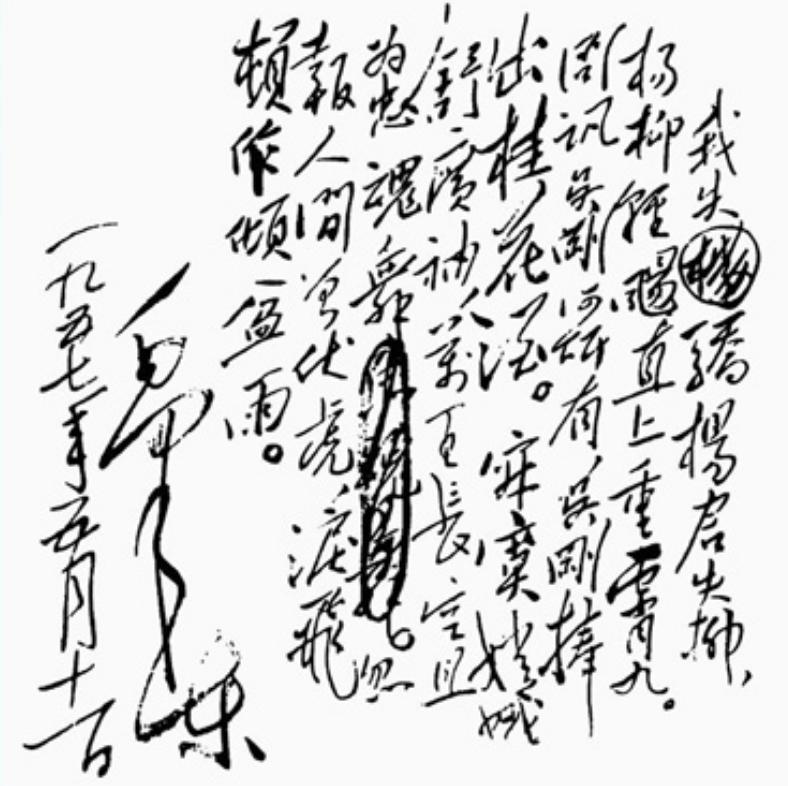 我失驕楊君失柳，
杨柳輕颺直上重霄九。
問訊吳剛何所有吳剛捧
出桂花酒。寂寞嫦娥
舒廣袖萬里長空且
为忠魂舞 忽
報人間曾伏虎淚飛
頓作傾盆雨。
毛澤东
一九五七年五月十一日